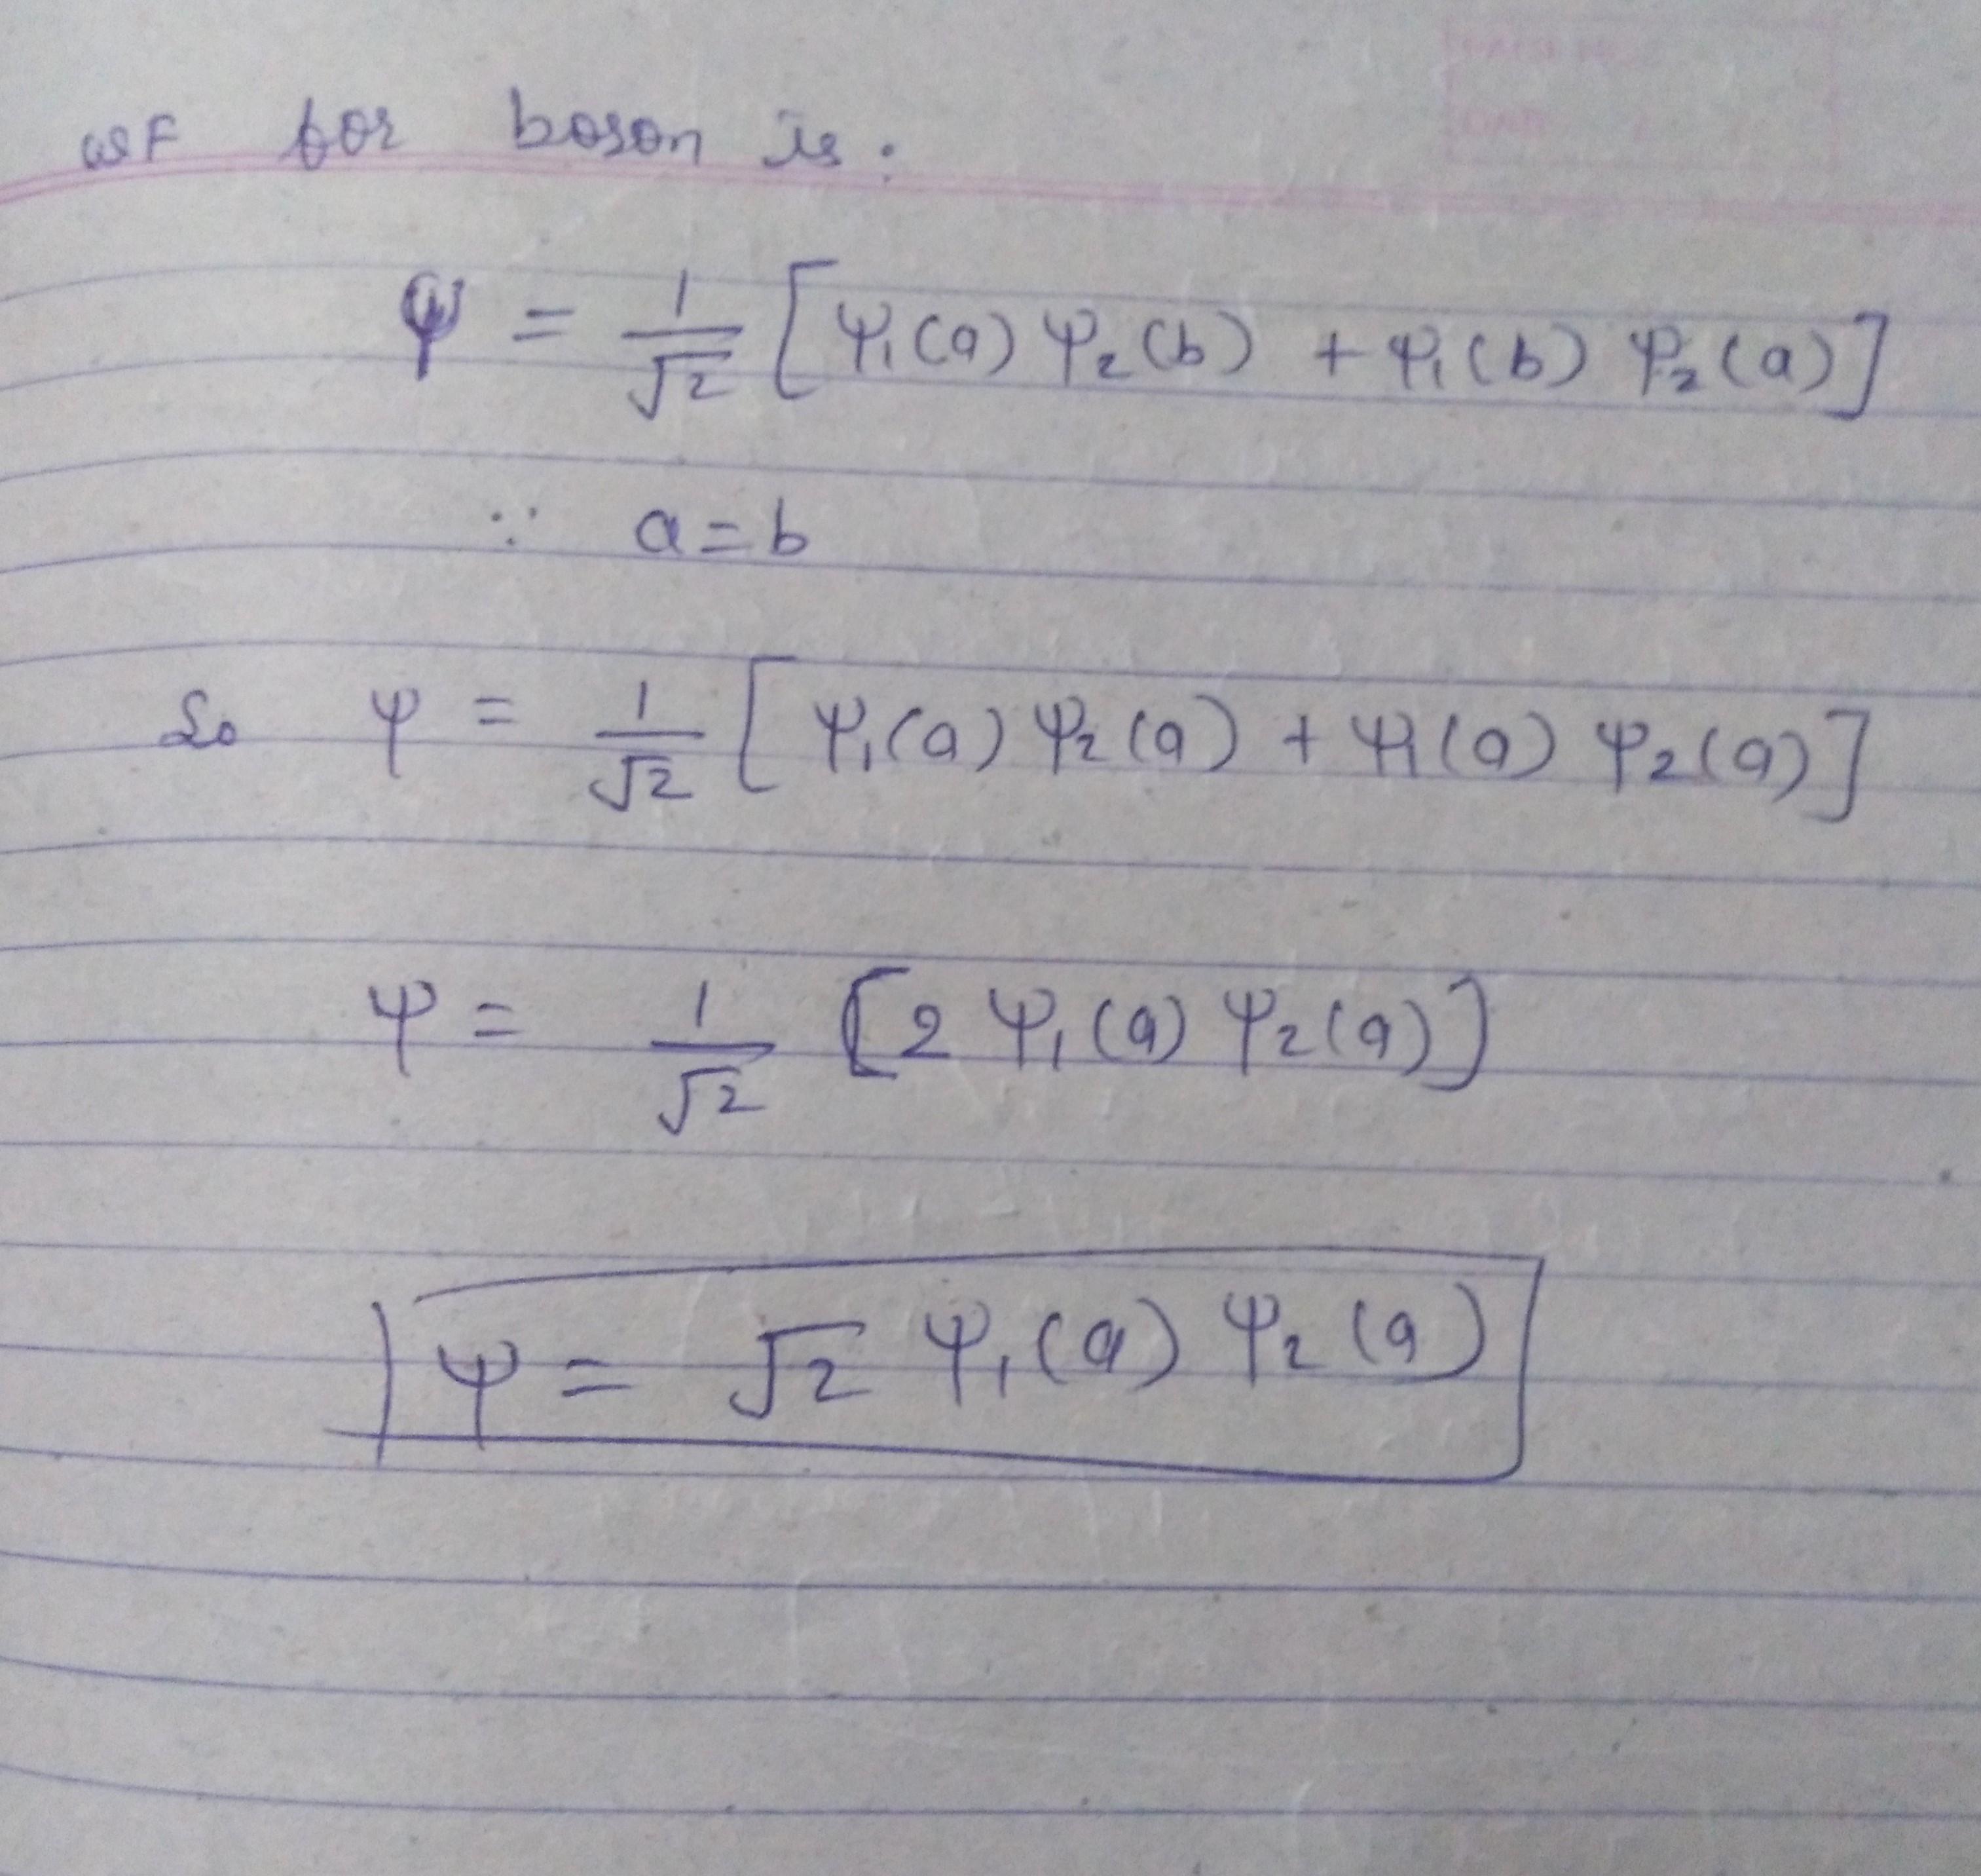 WF for boson is.
ψ = 1/√2 [ψ₁(a) ψ₂(b) + ψ₁(b) ψ₂(a)]
∵ a=b
So ψ = 1/√2 [ψ₁(a) ψ₂(a) + ψ₁(a) ψ₂(a)]
ψ = 1/√2 [2 ψ₁(a) ψ₂(a)]
ψ = √2 ψ₁(a) ψ₂(a)